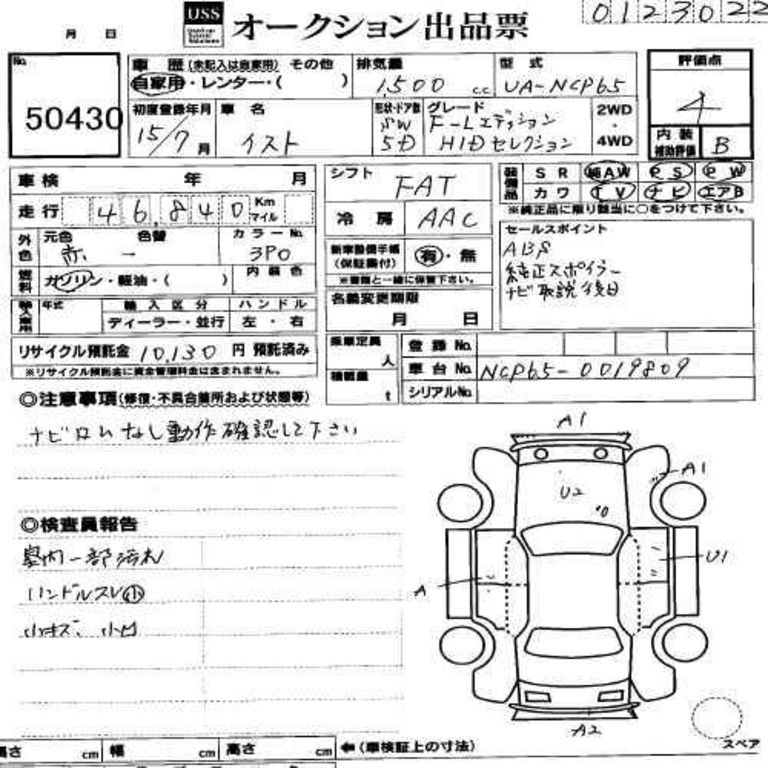 USS オークション出品票 0123022
月 日
No. 50430
車歴(未記入は自家用) その他
自家用・レンター・( )
排気量 1,500 c.c.
型式 UA-NCP65
評価点 4
内装補助評価 B
初度登録年月 15/7月
車名 イスト
形状・ドア数 SW 5D
グレード F-Lエディション HIDセレクション
2WD・4WD
車検 年 月
走行 46,840 Km マイル
外色 元色 赤 色替 — カラーNo. 3P0
燃料 ガソリン・軽油・( ) 内装色
輸入車用 年式 輸入区分 ハンドル
ディーラー・並行 左・右
リサイクル預託金 10,130 円 預託済み
※リサイクル預託金に資金管理料金は含まれません。
シフト FAT
冷房 AAC
新車整備手帳(保証書付) 有・無
※書類と一緒に保管下さい。
名義変更期限
月 日
装備品 SR 純AW PS PW
カワ TV ナビ エアB
※純正品に限り該当に○をつけて下さい。
セールスポイント
ABS
純正スポイラー
ナビ取説後日
乗車定員 人
積載量 t
登録No.
車台No. NCP65-0019809
シリアルNo.
◎注意事項(修復・不具合箇所および状態等)
ナビロムなし動作確認して下さい
◎検査員報告
室内一部汚れ
ハンドルスレ小
小キズ、小凹
A1
A1
U2
U1
A
A2
スペア
高さ cm 幅 cm 高さ cm ←(車検証上の寸法)